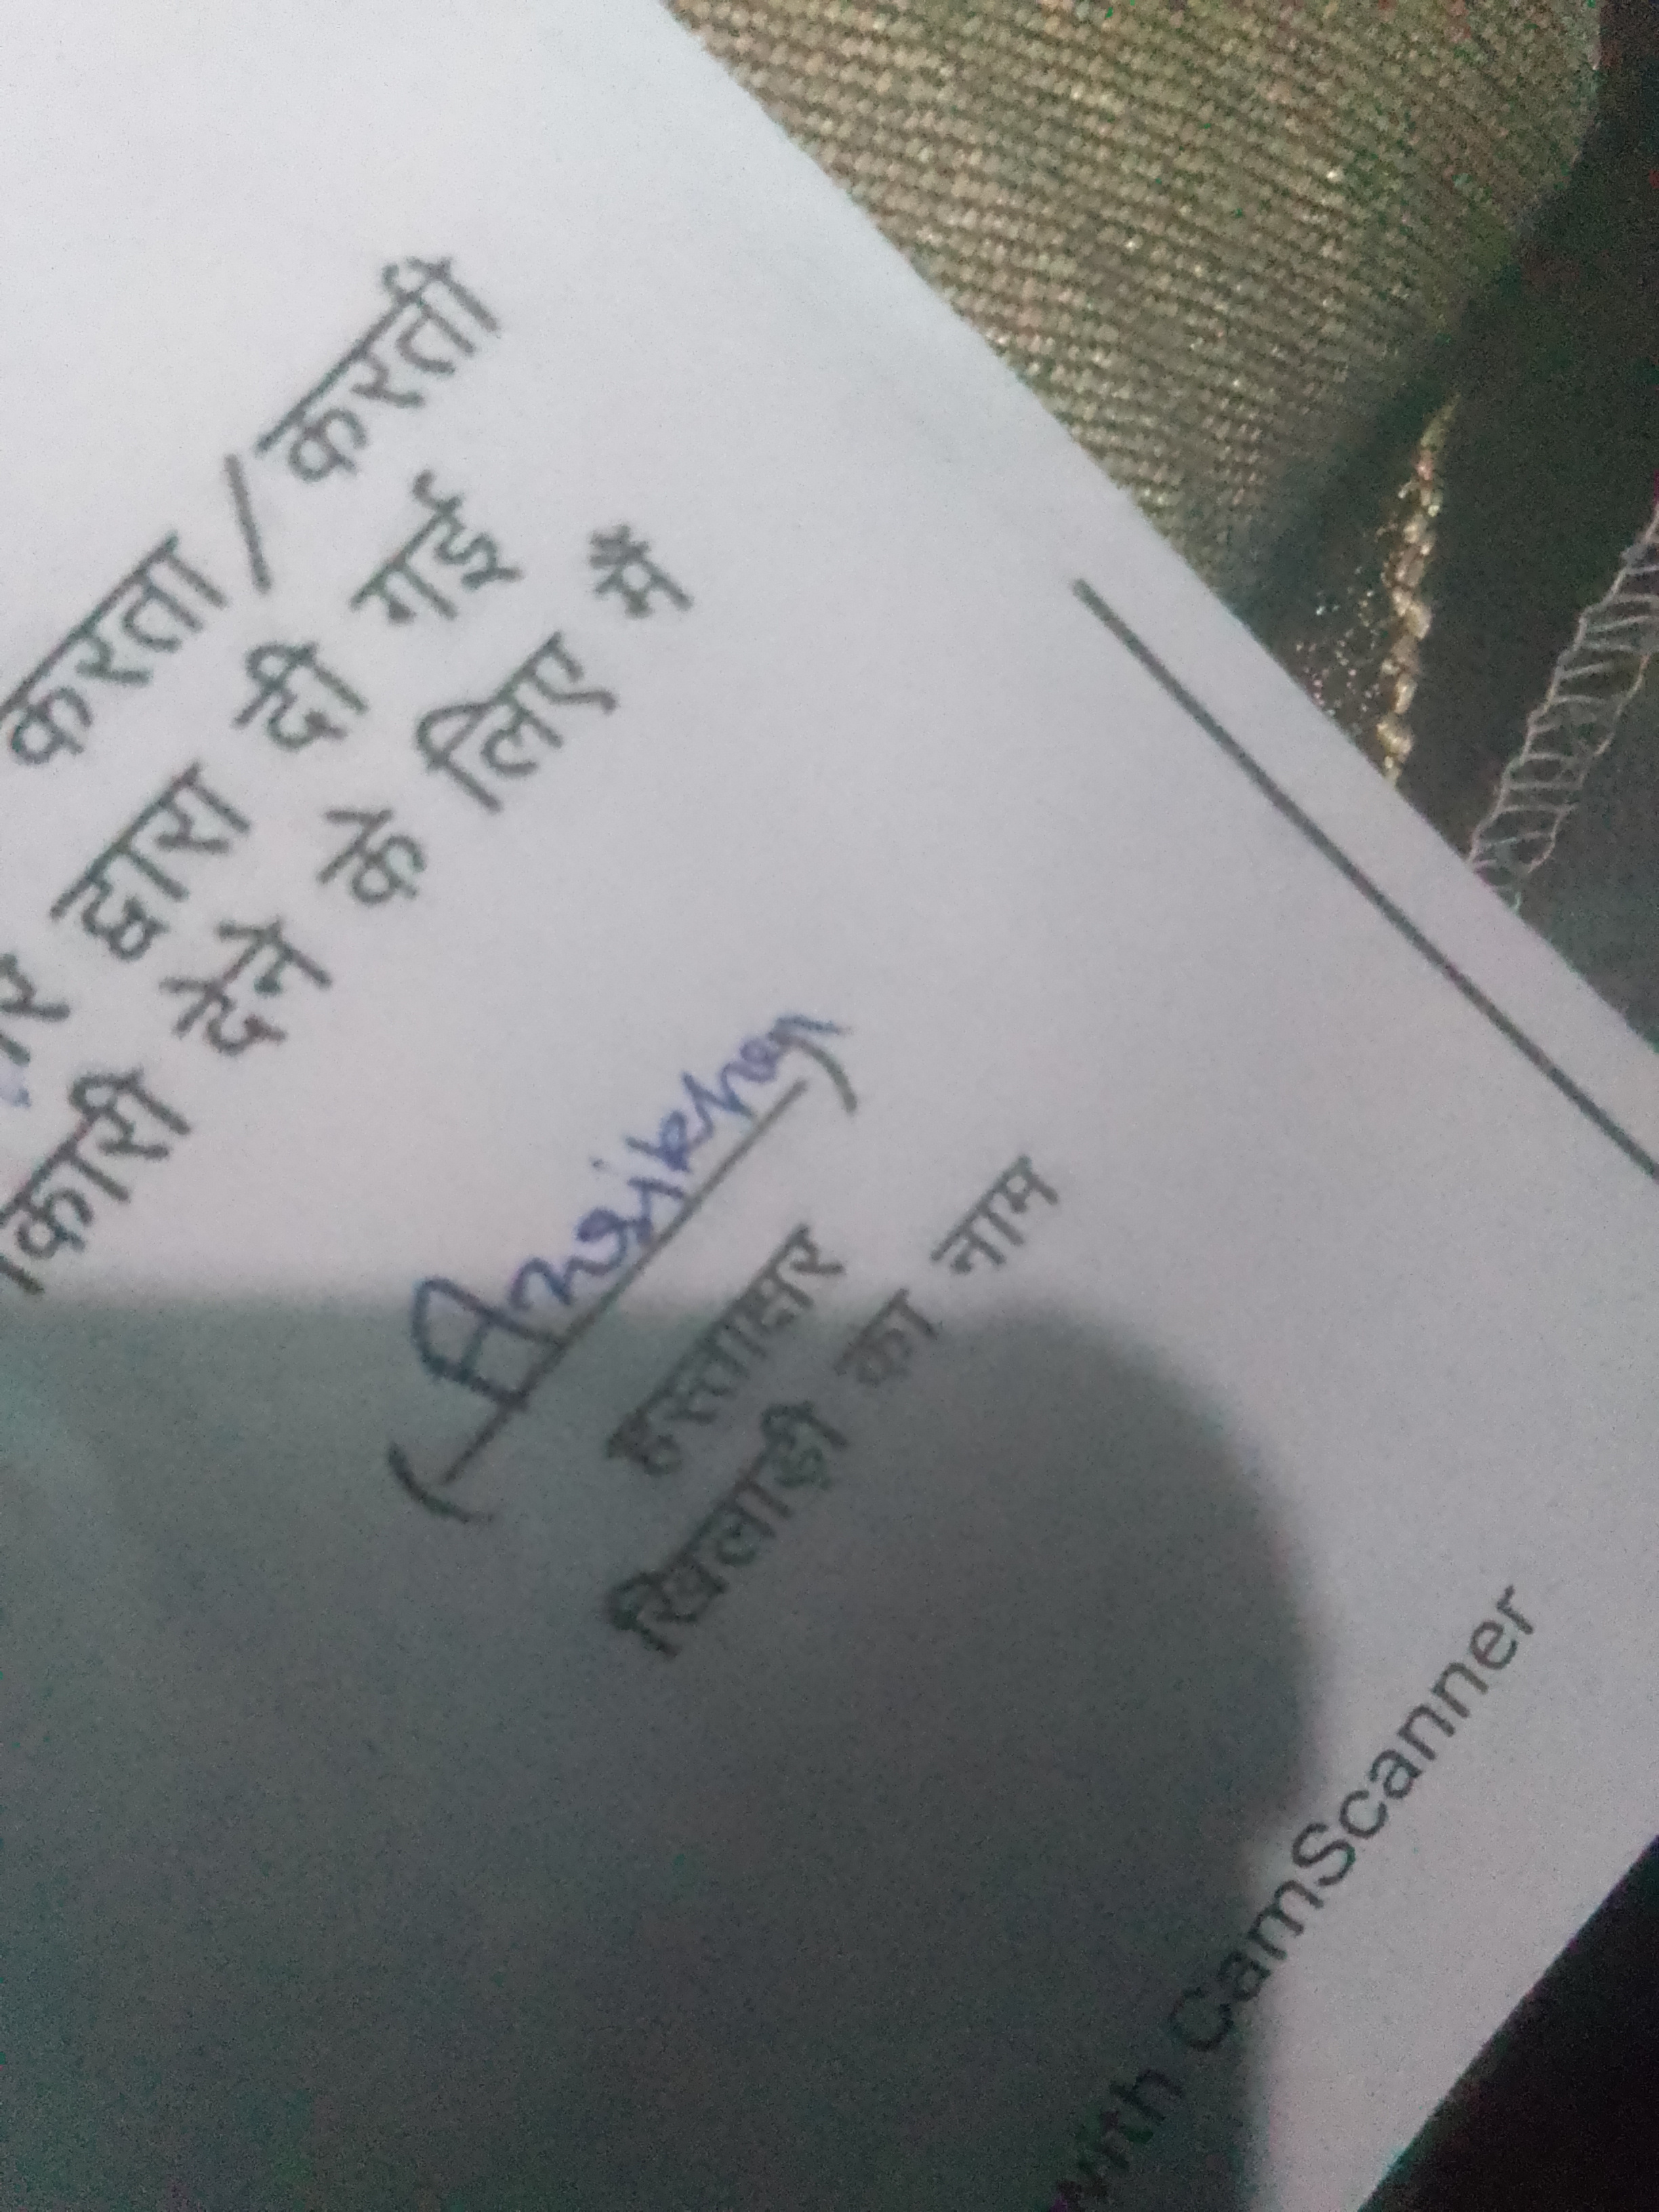 करता / करती
द्वारा दी गई
कारी देने के लिए मैं
हस्ताक्षर
खिलाड़ी का नाम
with CamScanner